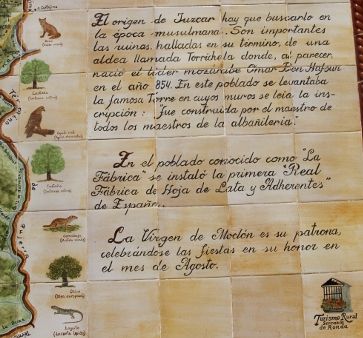 El origen de Juzcar hay que buscarlo en
la época musulmana. Son importantes
las ruinas, halladas en su término, de una
aldea llamada Torrichela donde, al parecer,
nació el líder mozárabe Omar Ben Hafsun
en el año 854. En este poblado se levantaba
la famosa Torre en cuyos muros se leía la ins-
cripción: "Fue construida por el maestro de
todos los maestros de la albañilería".
En el poblado conocido como "La
Fábrica" se instaló la primera "Real
Fábrica de Hoja de Lata y Adherentes"
de España.
La Virgen de Moclón es su patrona,
celebrándose las fiestas en su honor en
el mes de Agosto.
Turismo Rural
Serranía
de Ronda